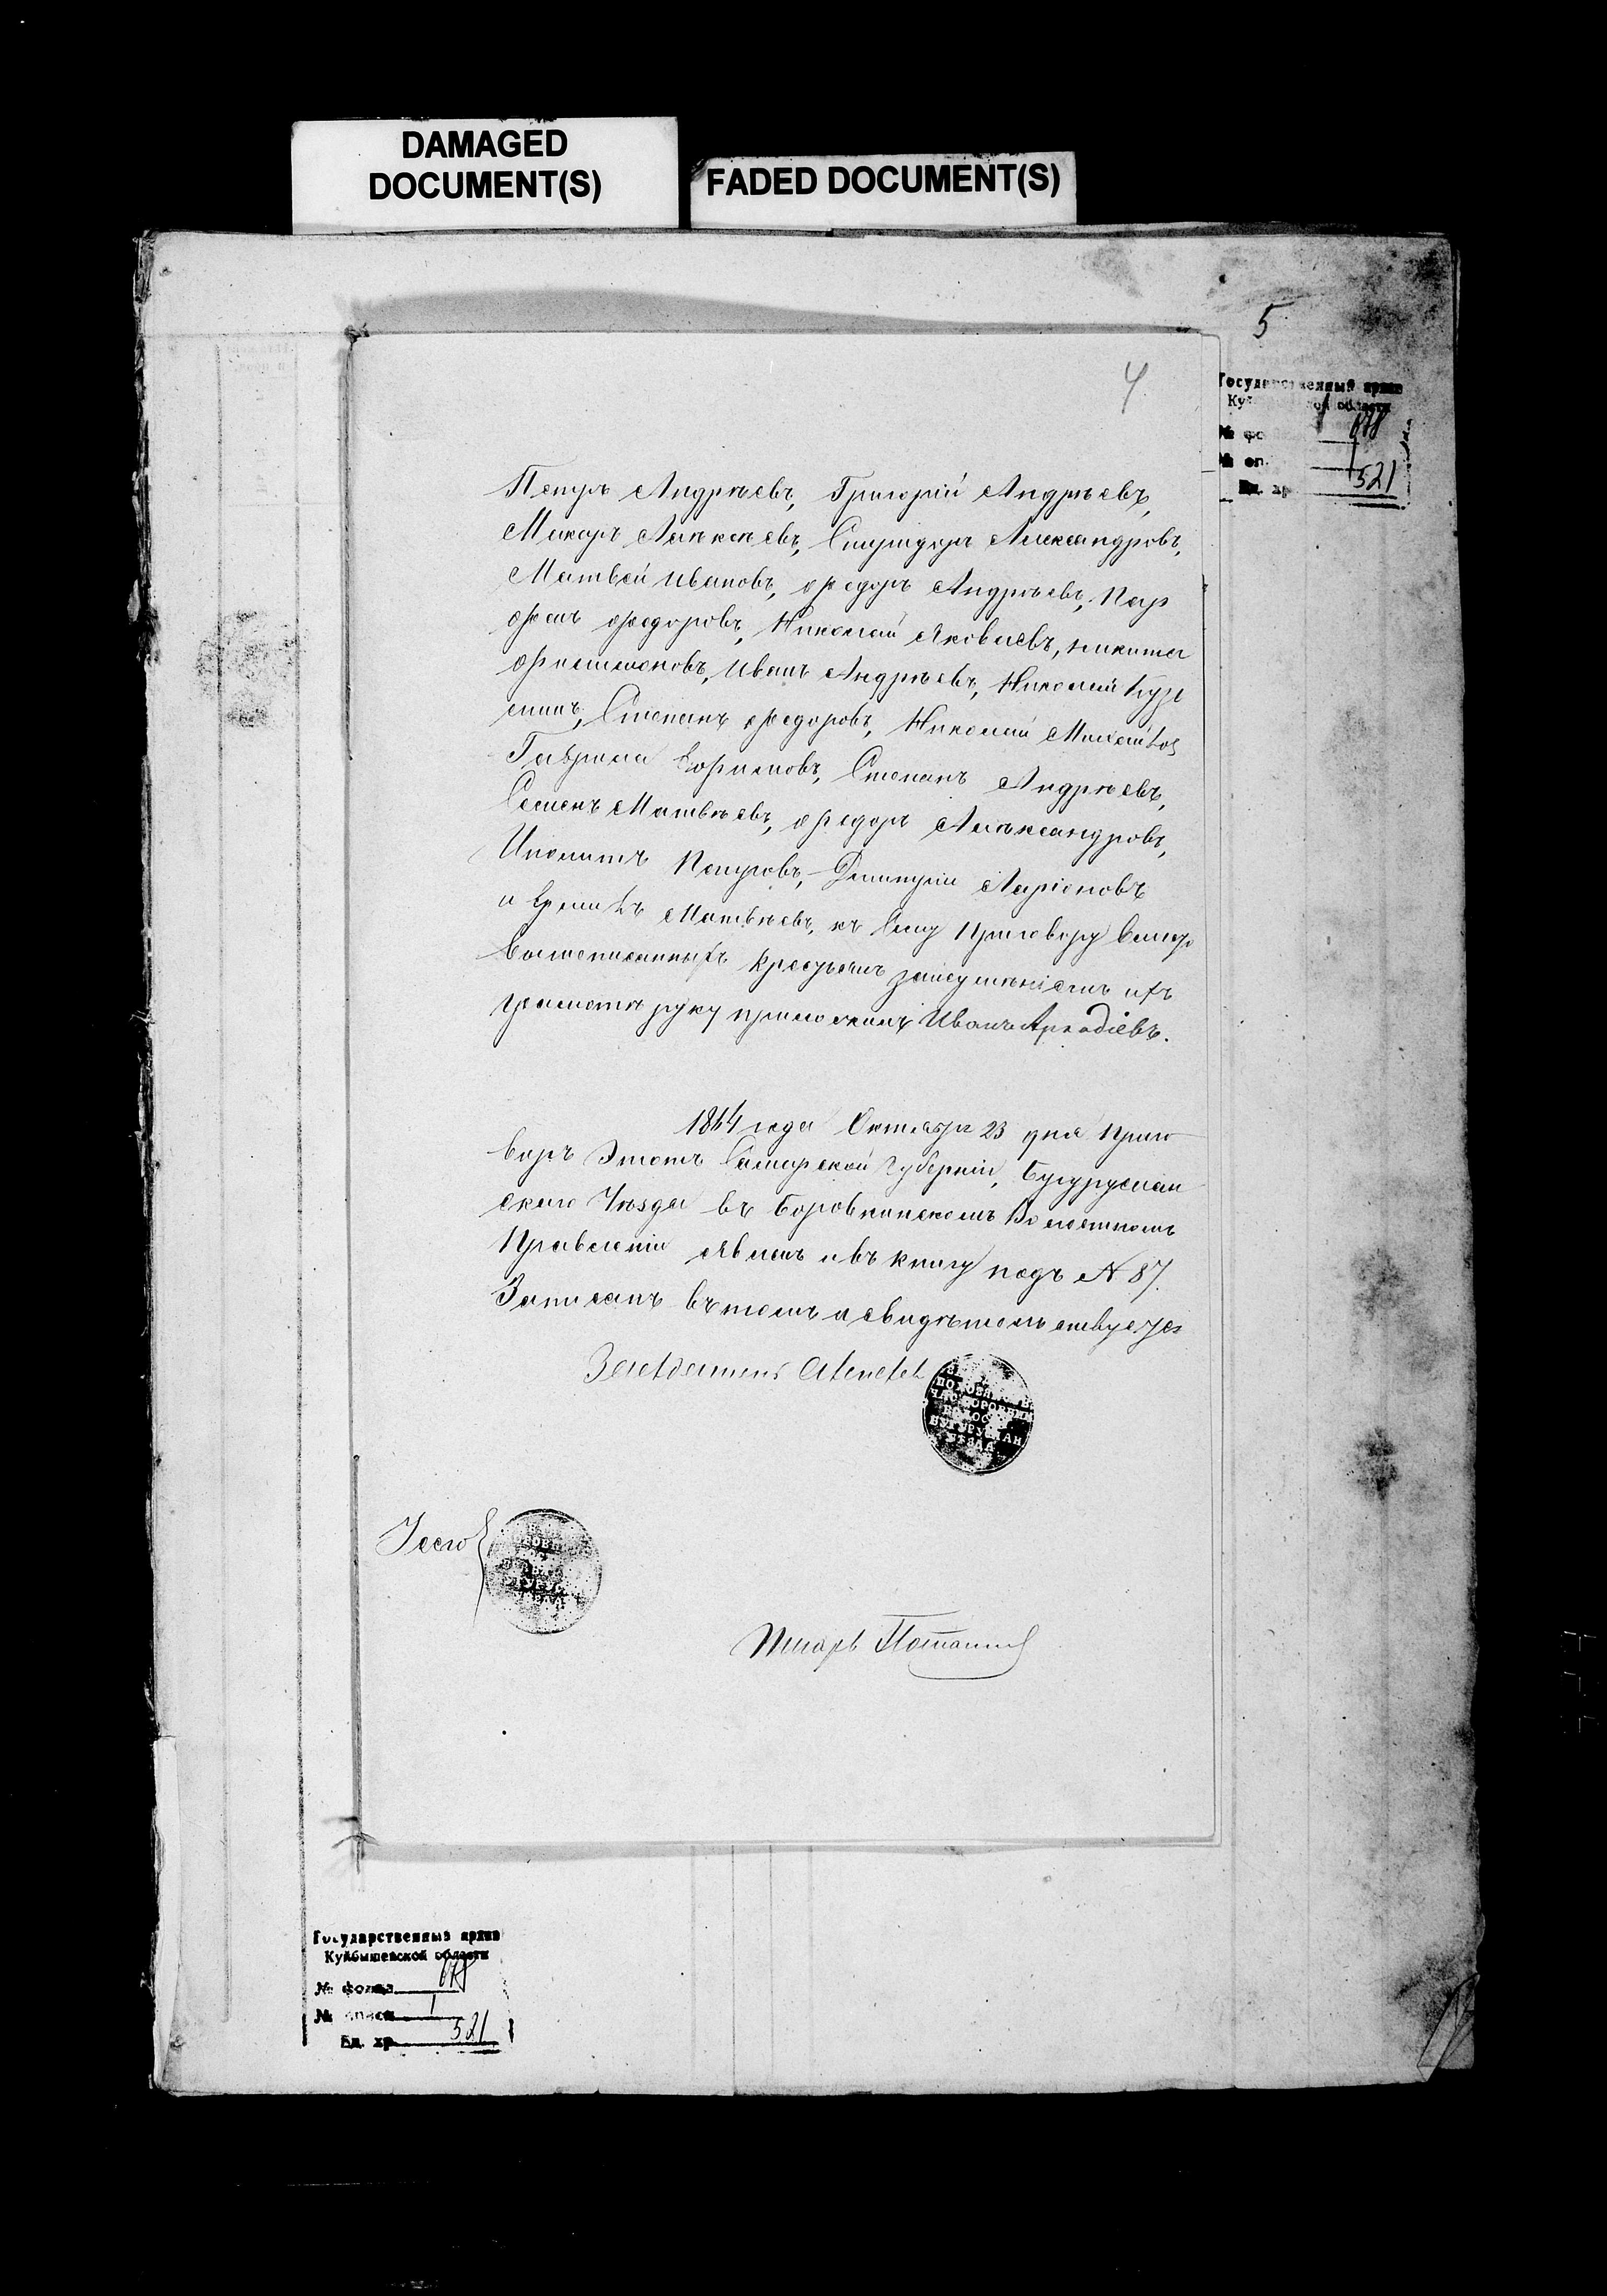 DAMAGED
DOCUMENT(S)
FADED DOCUMENT(S)
5
4
Государственный архив
Ку ой области
№ фо 878
№ оп. 1
Ед. хр 521
Петръ Андрѣевъ, Григорій Андрѣевъ,
Макаръ Алѣксѣевъ, Спиридонъ Александровъ,
Матвѣй Ивановъ, Федоръ Андрѣевъ, Пар
фенъ Федоровъ, Николай Яковлевъ, Никита
Филимоновъ, Иванъ Андрѣевъ, Николай Кузь
минъ, Степанъ Федоровъ, Николай Михайлов
Гаврила Ефимовъ, Степанъ Андрѣевъ,
Семенъ Матвѣевъ, Федоръ Алѣксандровъ,
Иполитъ Петровъ, Дмитрій Ларіоновъ
и Матвѣевъ, къ сему приговору вмѣсто
вышеписанныхъ крестьянъ за неумѣніемъ ихъ
грамотѣ руку приложилъ Иванъ Аркадіевъ.
1864 года Октября 23 дня приго
воръ этотъ Самарской губерніи, Бугуруслан
скаго Уѣзда въ Боровкинскомъ Волостномъ
Правленіи явленъ и въ книгу подъ № 87.
Записанъ въ томъ и свидѣтельствуется
Засѣдатель
БУГУРУСЛАН
УѢЗДА
Писарь Потапов
Государственный архив
Куйбышевской области
№ фонда 878
№ описи 1
Ед. хр. 521